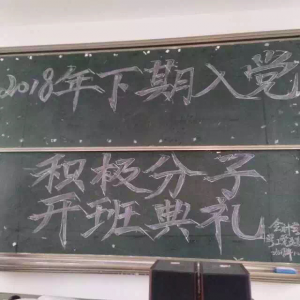 2018年下期入党
积极分子
开班典礼